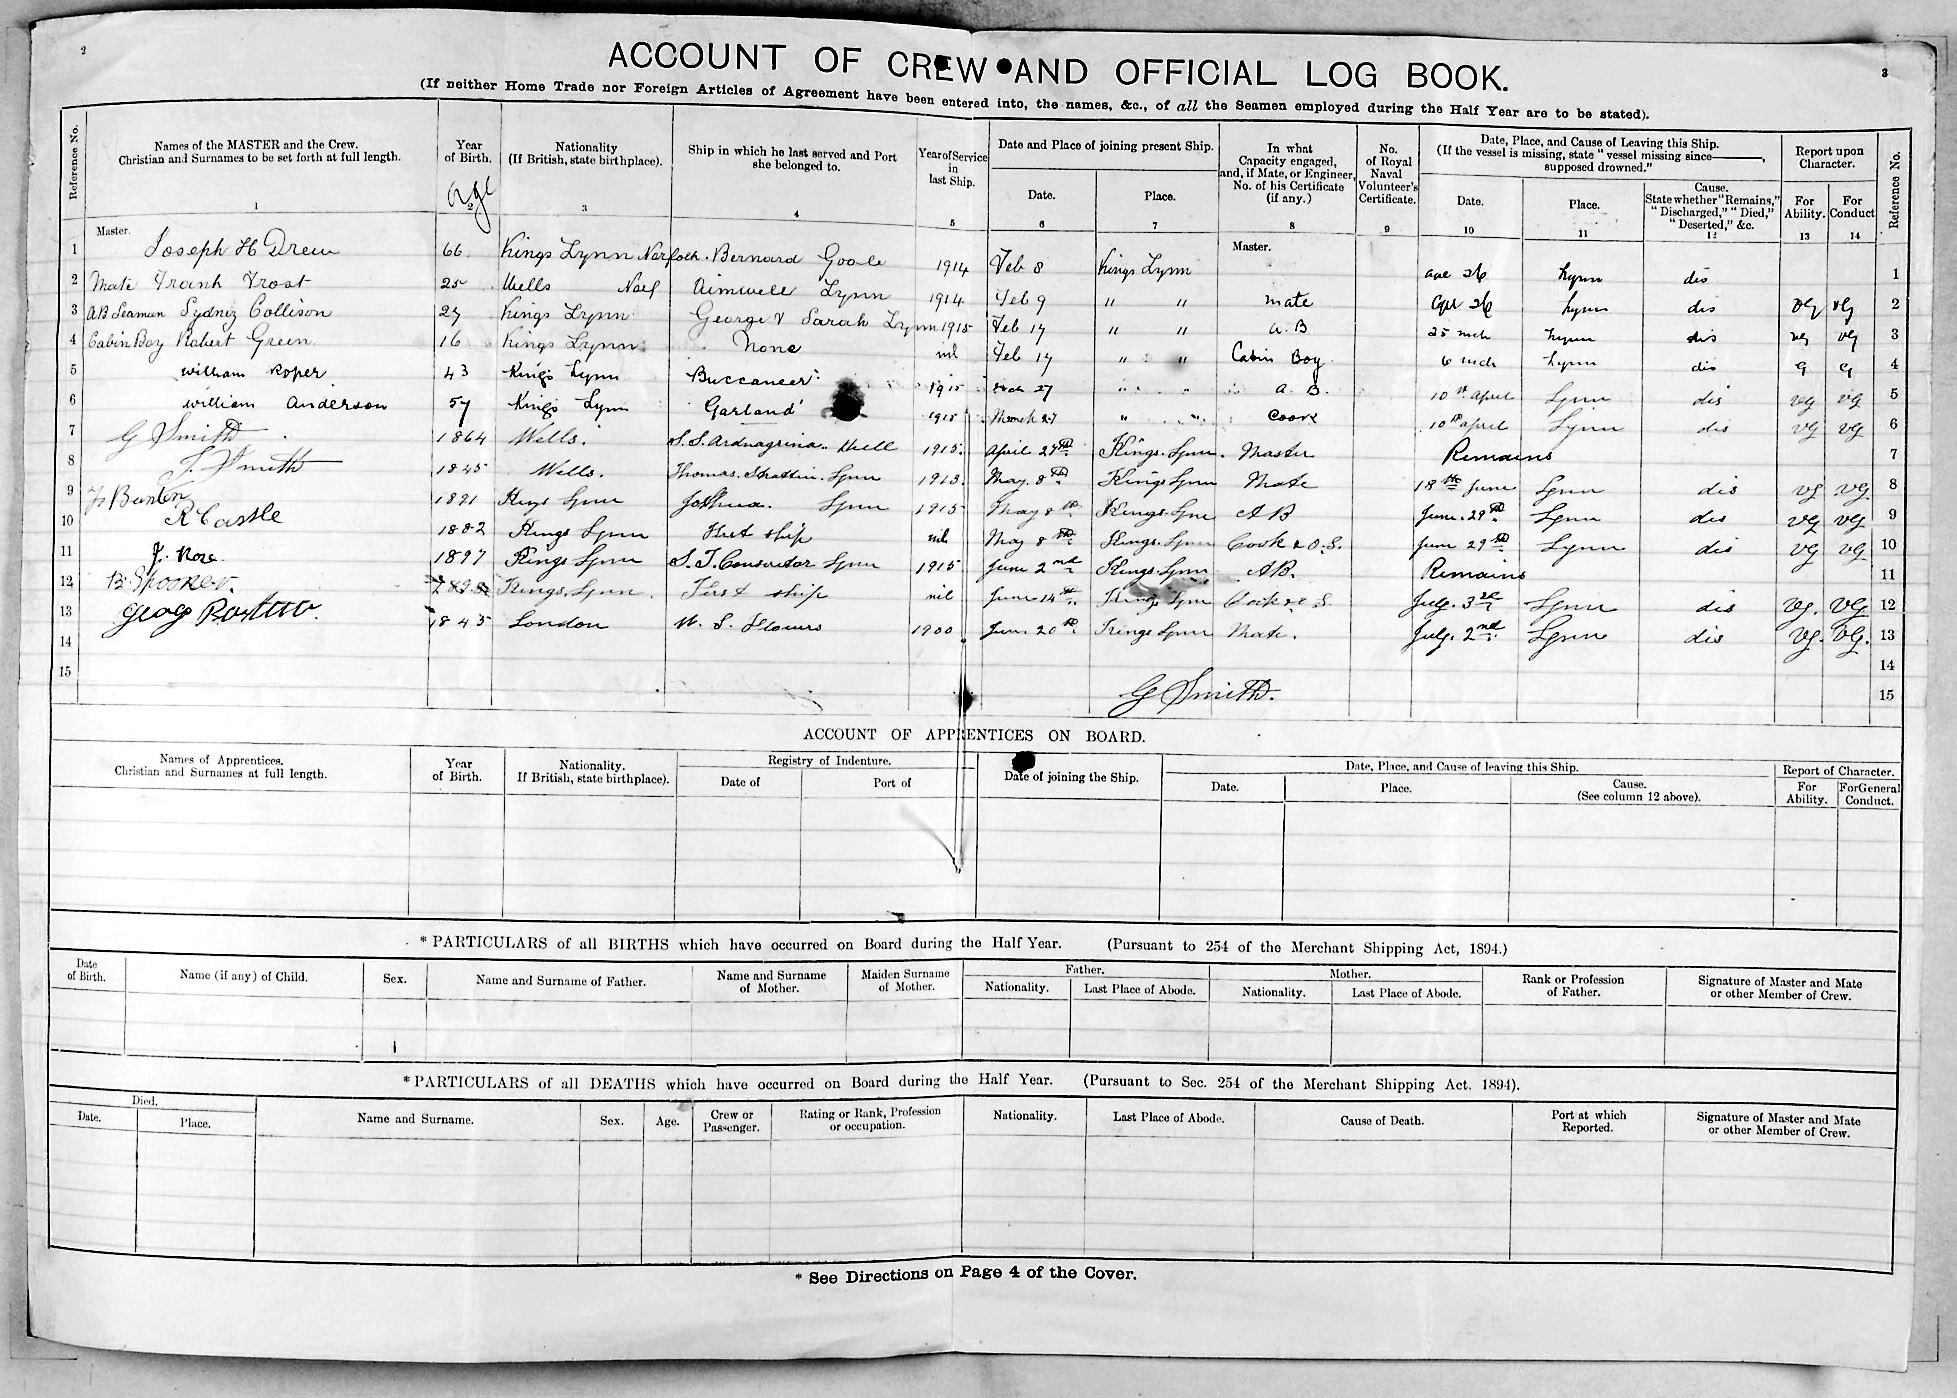 2
3
ACCOUNT OF CREW AND OFFICIAL LOG BOOK.
(If neither Home Trade nor Foreign Articles of Agreement have been entered into, the names, &c., of all the Seamen employed during the Half Year are to be stated).
Reference No. Names of the MASTER and the Crew. Christian and Surnames to be set forth at full length. Year of Birth. Nationality (If British, state birthplace). Ship in which he last served and Port she belonged to. Year of Service in last Ship. Date and Place of joining present Ship. Date. Place. In what Capacity engaged, and, if Mate, or Engineer, No. of his Certificate (if any.) No. of Royal Naval Volunteer's Certificate. Date, Place, and Cause of Leaving this Ship. (If the vessel is missing, state "vessel missing since———, supposed drowned." Date. Place. Cause. State whether "Remains," "Discharged," "Died," "Deserted," &c. Report upon Character. For Ability. For Conduct Reference No.
age
1 2 3 4 5 6 7 8 9 10 11 12 13 14
Master. Master.
1 Joseph H Drew 66 Kings Lynn Norfolk Bernard Goole 1914 Feb 8 Kings Lynn 26 Lynn dis 1
2 Mate Frank Frost 25 Wells Norf Aimwell Lynn 1914 Feb 9 " " mate Apl 26 Lynn dis VG VG 2
3 AB Seaman Sydney Collison 27 Kings Lynn George & Sarah Lynn 1915 Feb 17 " " A B 25 mch Lynn dis VG VG 3
4 Cabin Boy Robert Green 16 Kings Lynn None nil Feb 17 " " Cabin Boy 6 mch Lynn dis G G 4
5 William Roper 43 Kings Lynn Buccaneer 1915 27 " " A B. 10th April Lynn dis VG VG 5
6 William Anderson 57 Kings Lynn Garland 1915 March 27 " " Cook 10th april Lynn dis VG VG 6
7 G Smith 1864 Wells. S.S. Hull 1915. April 27th Kings Lynn. Master Remains 7
8 Smith 1845 Wells. Thomas Lynn 1913. May. 8th Kings Lynn Mate 18th June Lynn dis VG VG 8
9 Bunten 1891 Kings Lynn Joshua. Lynn 1915 May 8th Kings Lynn AB June. 29th Lynn dis VG VG 9
10 R Castle 1882 Kings Lynn First ship nil May 8th Kings Lynn Cook & O.S. June 29th Lynn dis VG VG 10
11 J. Rose 1897 Kings Lynn S.T. Conservator Lynn 1915 June 2nd Kings Lynn AB. Remains 11
12 B. Spooner. Kings Lynn. First ship nil June 14th Kings Lynn Cook & S. July. 3rd Lynn dis Vg. VG 12
13 1843 London W. S. Flowers 1900. June 20th Kings Lynn Mate. July. 2nd Lynn dis Vg. VG. 13
14 14
15 G Smith. 15
ACCOUNT OF APPRENTICES ON BOARD.
Names of Apprentices. Christian and Surnames at full length. Year of Birth. Nationality. If British, state birthplace). Registry of Indenture. Date of Port of Date of joining the Ship. Date, Place, and Cause of leaving this Ship. Date. Place. Cause. (See column 12 above). Report of Character. For Ability. For General Conduct.
* PARTICULARS of all BIRTHS which have occurred on Board during the Half Year. (Pursuant to 254 of the Merchant Shipping Act, 1894.)
Date of Birth. Name (if any) of Child. Sex. Name and Surname of Father. Name and Surname of Mother. Maiden Surname of Mother. Father. Nationality. Last Place of Abode. Mother. Nationality. Last Place of Abode. Rank or Profession of Father. Signature of Master and Mate or other Member of Crew.
* PARTICULARS of all DEATHS which have occurred on Board during the Half Year. (Pursuant to Sec. 254 of the Merchant Shipping Act. 1894).
Died. Date. Place. Name and Surname. Sex. Age. Crew or Passenger. Rating or Rank, Profession or occupation. Nationality. Last Place of Abode. Cause of Death. Port at which Reported. Signature of Master and Mate or other Member of Crew.
* See Directions on Page 4 of the Cover.